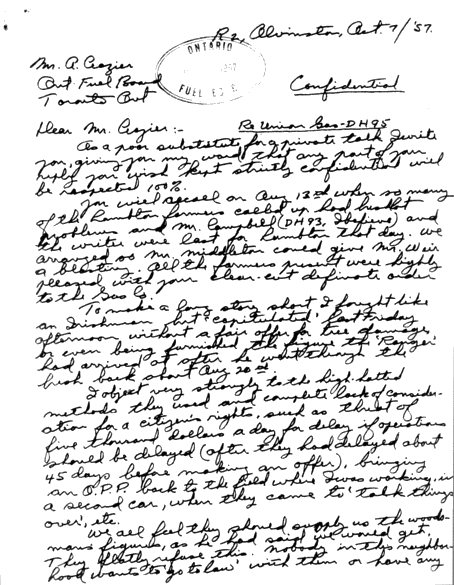 R 2, Alvinston, Oct. 7/'57.
ONTARIO
FUEL BD
Mr. A. Crozier
Ont Fuel Board
Toronto Ont
Confidential
Dear Mr. Crozier:- Re Union Gas-DH95
As a poor substitute for a private talk I write
you, giving you my word that any part of your
reply you wish kept strictly confidential will
be respected 100%.
You will recall on Aug 13th when so many
of the Lambton farmers called up, had
problems and Mr. Campbell (DH 93, I believe) and
the writer were last for Lambton that day. We
arranged so Mr. Middleton could give Mr. Weir
a blasting. All the farmers present were highly
pleased with your clear-cut definate order
to the Gas Co.
To make a long story short I fought like
an Irishman but 'capitulated' last Friday
afternoon without a fair offer for tree damage,
or even being furnished the figure the 'Ranger'
had arrived at after he went through the
bush back about Aug 20th.
I object very strongly to the high-hatted
methods they used and complete lack of consider-
ation for a citizen's rights, such as threat of
five thousand dollars a day for delay if operations
should be delayed (after they had delayed about
45 days before making an offer), bringing
an O.P.P. back to the field where I was working, in
a second car, when they came to 'talk things
over', etc.
We all feel they should supply us the woods-
mans figures, as he had said we would get.
They flatly refuse this. Nobody in this neighbor-
hood wants to 'go to law' with them or have any